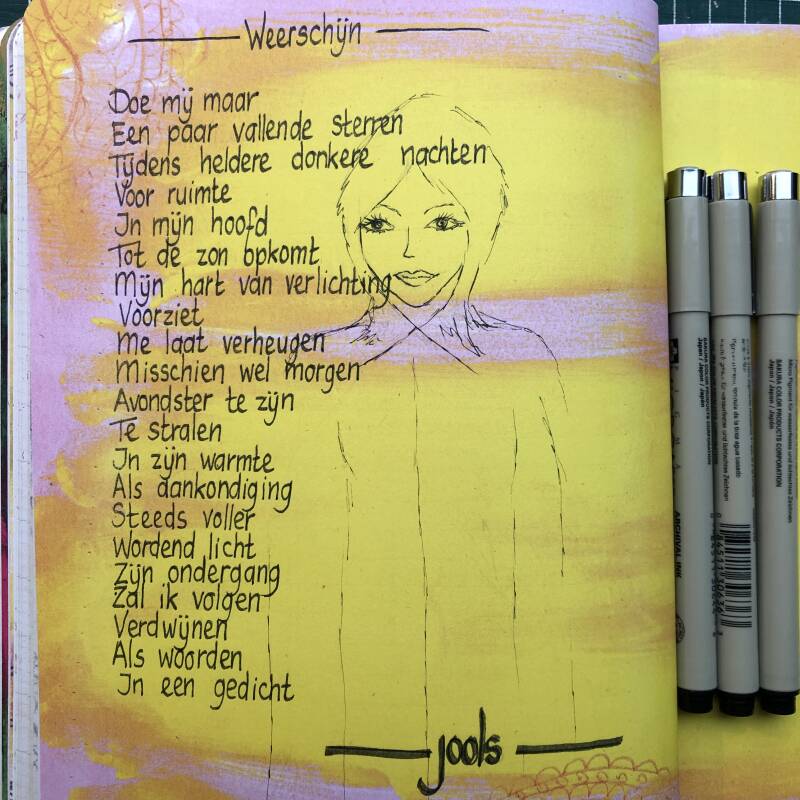 Weerschijn
Doe mij maar
Een paar vallende sterren
Tijdens heldere donkere nachten
Voor ruimte
In mijn hoofd
Tot de zon opkomt
Mijn hart van verlichting
Voorziet
Me laat verheugen
Misschien wel morgen
Avondster te zijn
Te stralen
In zijn warmte
Als aankondiging
Steeds voller
Wordend licht
Zijn ondergang
Zal ik volgen
Verdwijnen
Als woorden
In een gedicht
jools
SAKURA COLOR PRODUCTS CORPORATION
Japan / Japon / Japón
ARCHIVAL INK
SAKURA COLOR PRODUCTS CORPORATION
Japan / Japon / Japón